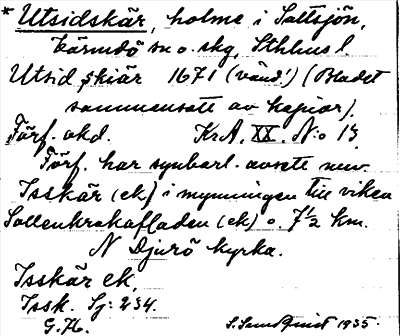 * Utsidskär, holme i Saltsjön,
Värmdö sn o. skg, Sthlms l
Utsid skiär 1671 (vänd!) (Bladet
sammansatt av kopior).
Förf. okd. KrA, XX. N:o 13
Förf. har synbarl. avsett nuv.
Isskär (ek) i mynningen till viken
Sollenkrokafladen (ek) o. 7½ km.
N Djurö kyrka.
Isskär ek.
Issk. Sj: 234.
G. H. S. Sundqvist 1935.